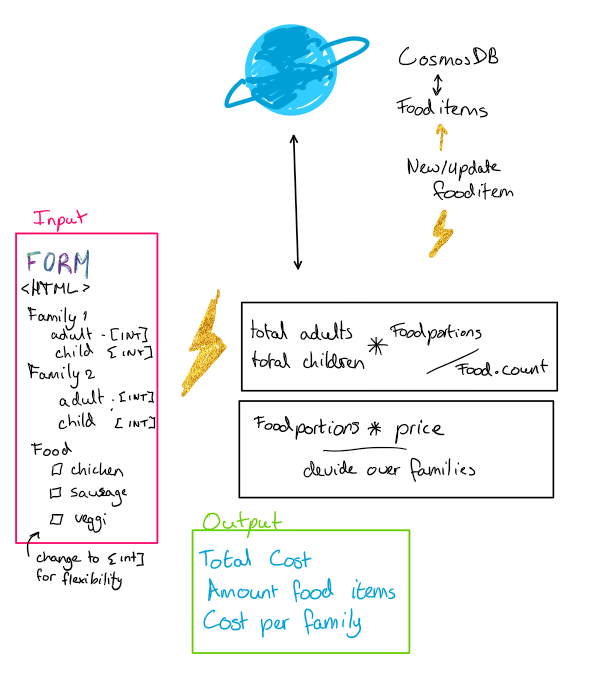 CosmosDB
Food items
New/update
fooditem
Input
FORM
<HTML>
Family 1
adult - [INT]
child [INT]
Family 2
adult . [INT]
child : [INT]
Food
chicken
sausage
veggi
change to [int]
for flexibility
total adults
total children
* Foodportions
/ Food.count
Foodportions * price
devide over families
Output
Total Cost
Amount food items
Cost per family